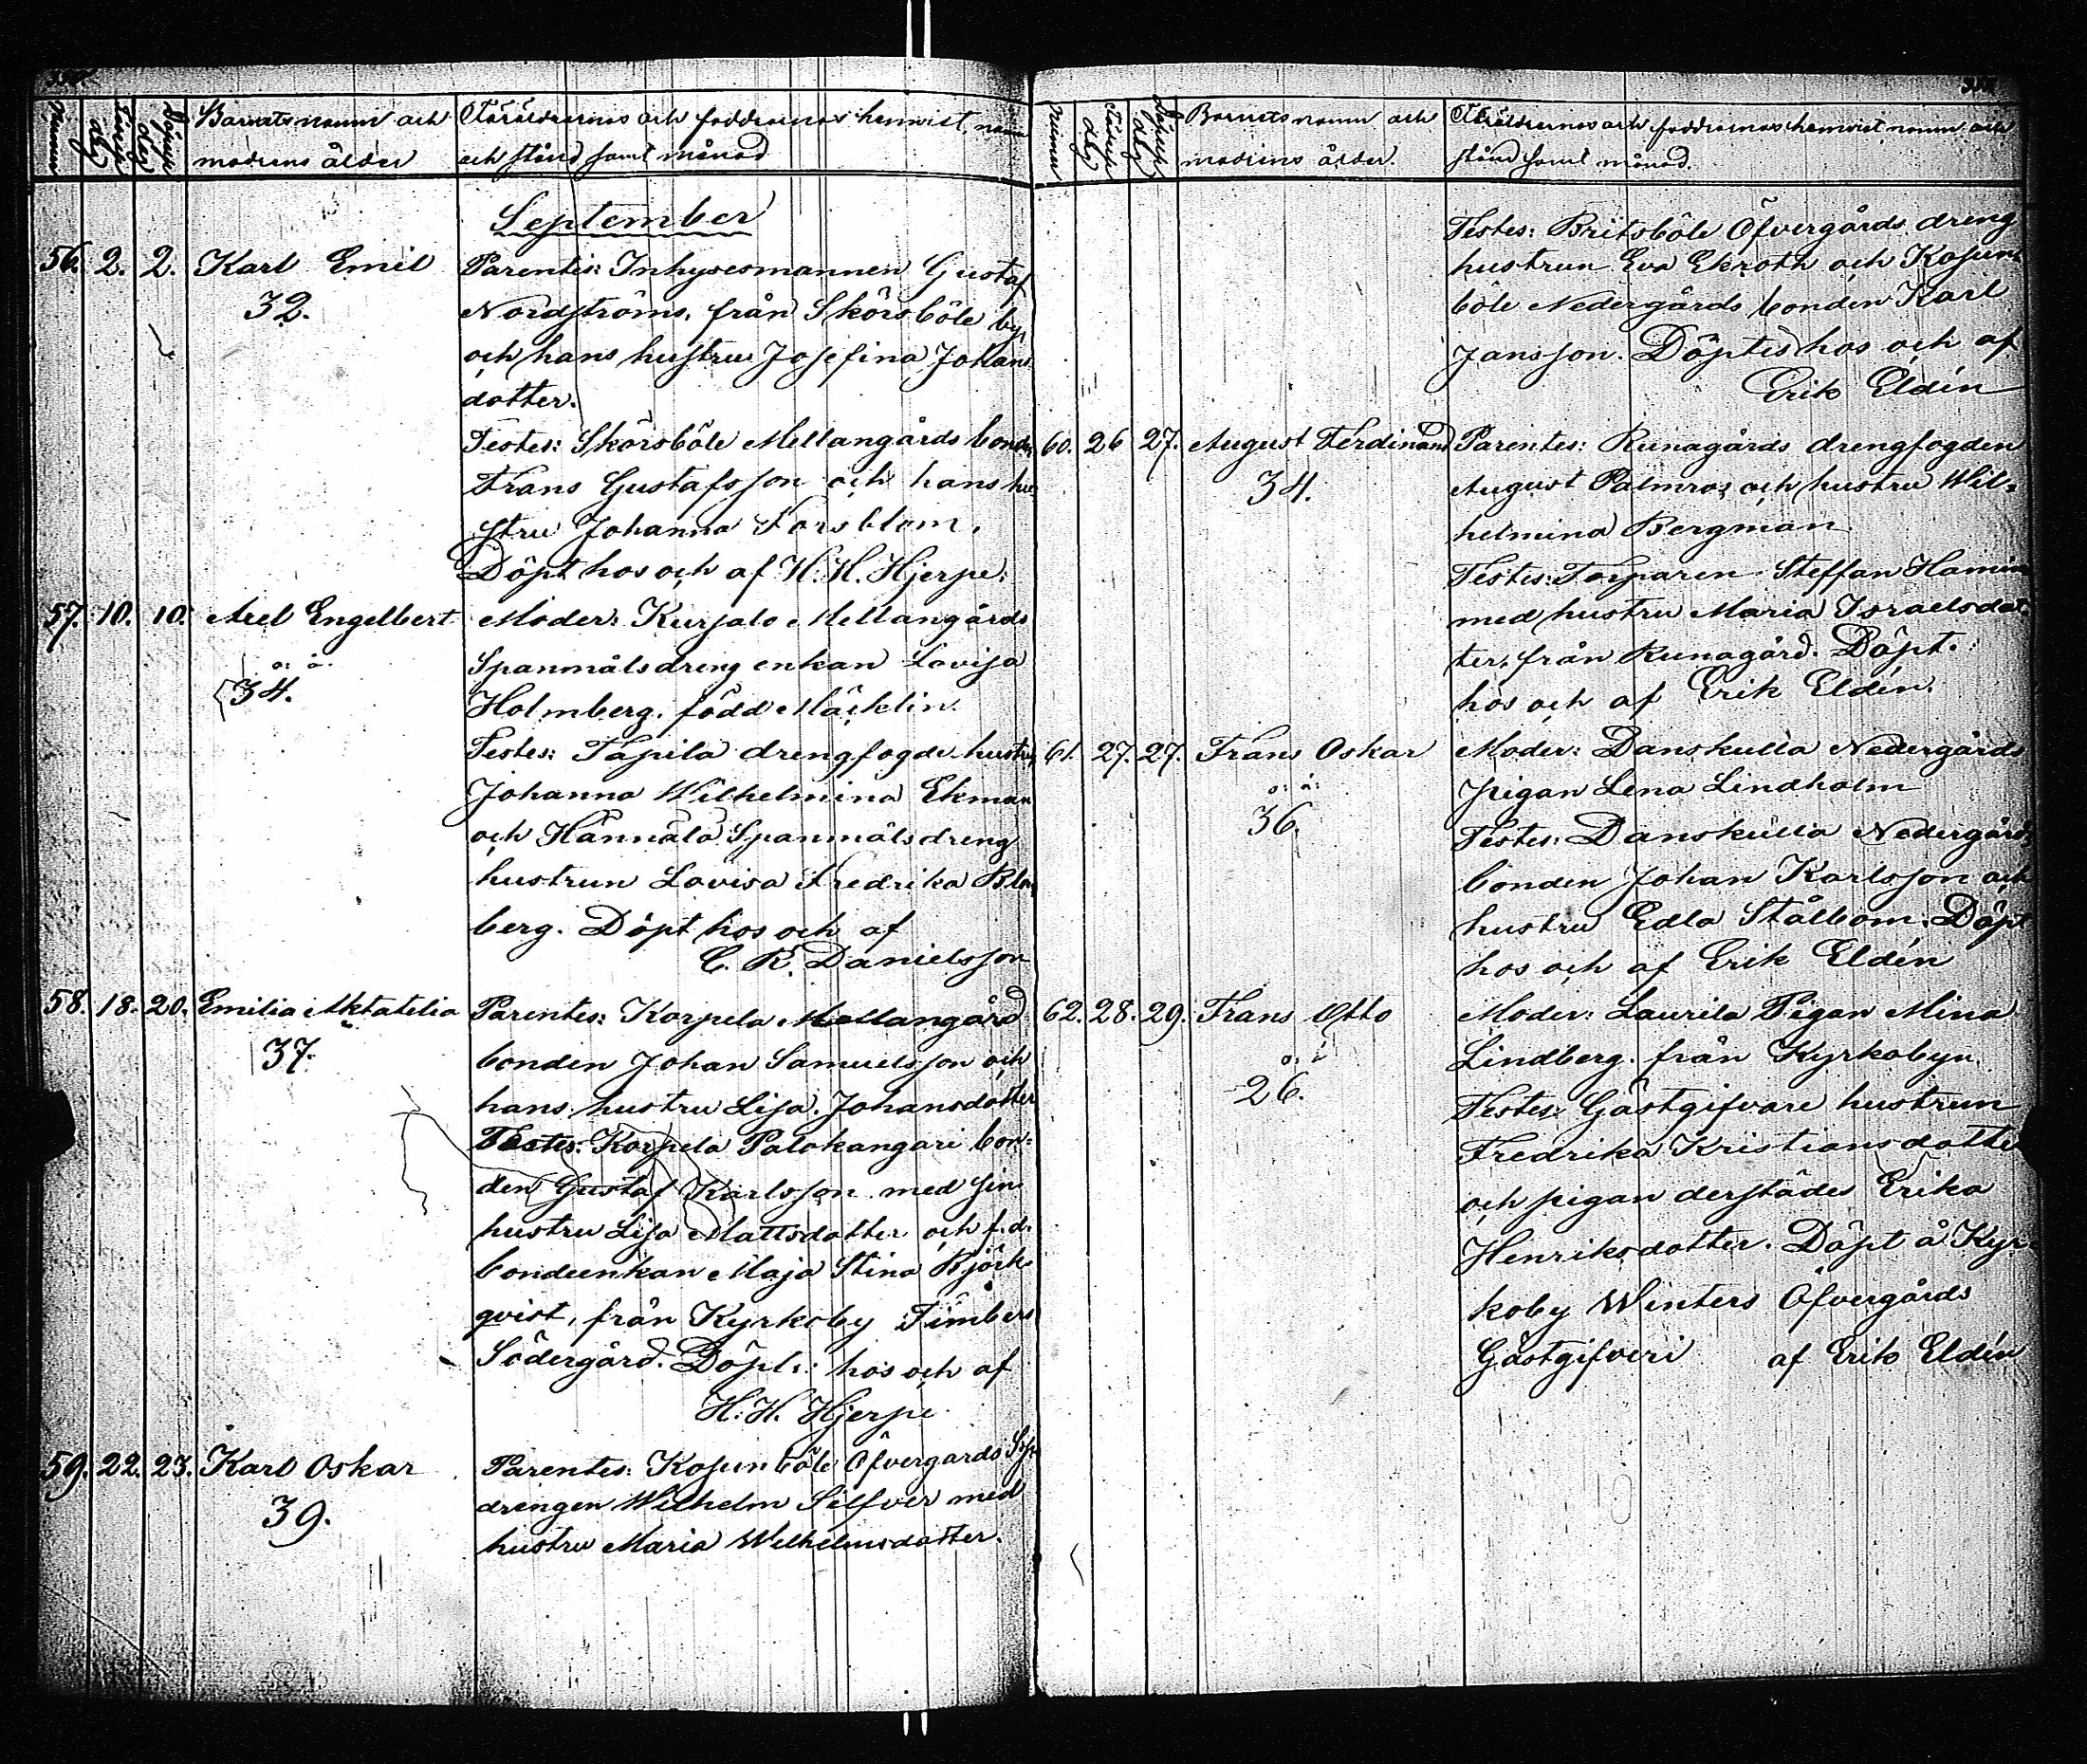 Numer
Födelse dag
Döpelse dag
Barnets namn och
modrens ålder
Föräldrarnas och faddrarnas hemvist, namn
och stånd samt månad
September
56. 2. 2. Karl Emil
32.
Parentes: Inhysesmannen Gustaf
Nordströms, från Skörsböle by,
och hans hustru Josefina Johans
dotter.
Testes: Skörsböle Mellangårds bonde
Frans Gustafsson och hans hu
stru Johanna Forsblom.
Döpt hos och af H. H. Hjerpe.
57. 10. 10. Axel Engelbert
o. ä.
34.
Moder: Kurjalo Mellangårds
Spanmålsdreng enkan Lovisa
Holmberg, född Mäcklin.
Testes: Tapila drengfogde hustru
Johanna Wilhelmina Ekman
och Hännälä Spanmålsdreng
hustrun Lovisa Fredrika Blom
berg. Döpt hos och af
C. R. Danielsson
58. 18. 20. Emilia
37.
Parentes: Korpela Mellangård
bonden Johan Samuelsson och
hans hustru Lisa Johansdotter
Testes: Korpela Palokangari bon=
den Gustaf Karlsson med sin
hustru Lisa Mattsdotter och f.d.
bondeenkan Maja Stina Björk=
qvist, från Kyrkoby Timbers
Södergård. Döpt: hos och af
H. H. Hjerpe
59. 22. 23. Karl Oskar
39.
Parentes: Kosunböle Öfvergårds Sp
drengen Wilhelm Silfver med
hustru Maria Wilhelmsdotter.
Numer
Födelse dag
Döpelse dag
Barnets namn och
modrens ålder.
Föräldrarnas och faddrarnas hemvist namn och
stånd samt månad.
Testes: Britsböle Öfvergårds dreng
hustrun Eva Ekroth och Kosun
böle Nedergårds bonden Karl
Jansson. Döptes hos och af
Erik Eldén
60. 26 27. August Ferdinand
34.
Parentes: Runagårds drengfogden
August Palmros och hustru Wil=
helmina Bergman
Testes: Torparen Steffan Hamin
med hustru Maria Israelsdot
ter, från Runagård. Döpt.
hos och af Erik Eldén.
61. 27. 27. Frans Oskar
o. ä.
36.
Moder: Danskulla Nedergårds
pigan Lena Lindholm
Testes: Danskulla Nedergårds
bonden Johan Karlsson och
hustru Edla Stålbom. Döpt
hos och af Erik Eldén
62. 28. 29. Frans Otto
o. ä
26.
Moder: Laurila Pigan Mina
Lindberg. från Kyrkobyn.
Testes: Gästgifvare hustrun
Fredrika Kristiansdotte
och pigan derstädes Erika
Henriksdotter. Döpt å Kyr
koby Winters Öfvergårds
Gästgifveri af Erik Eldén